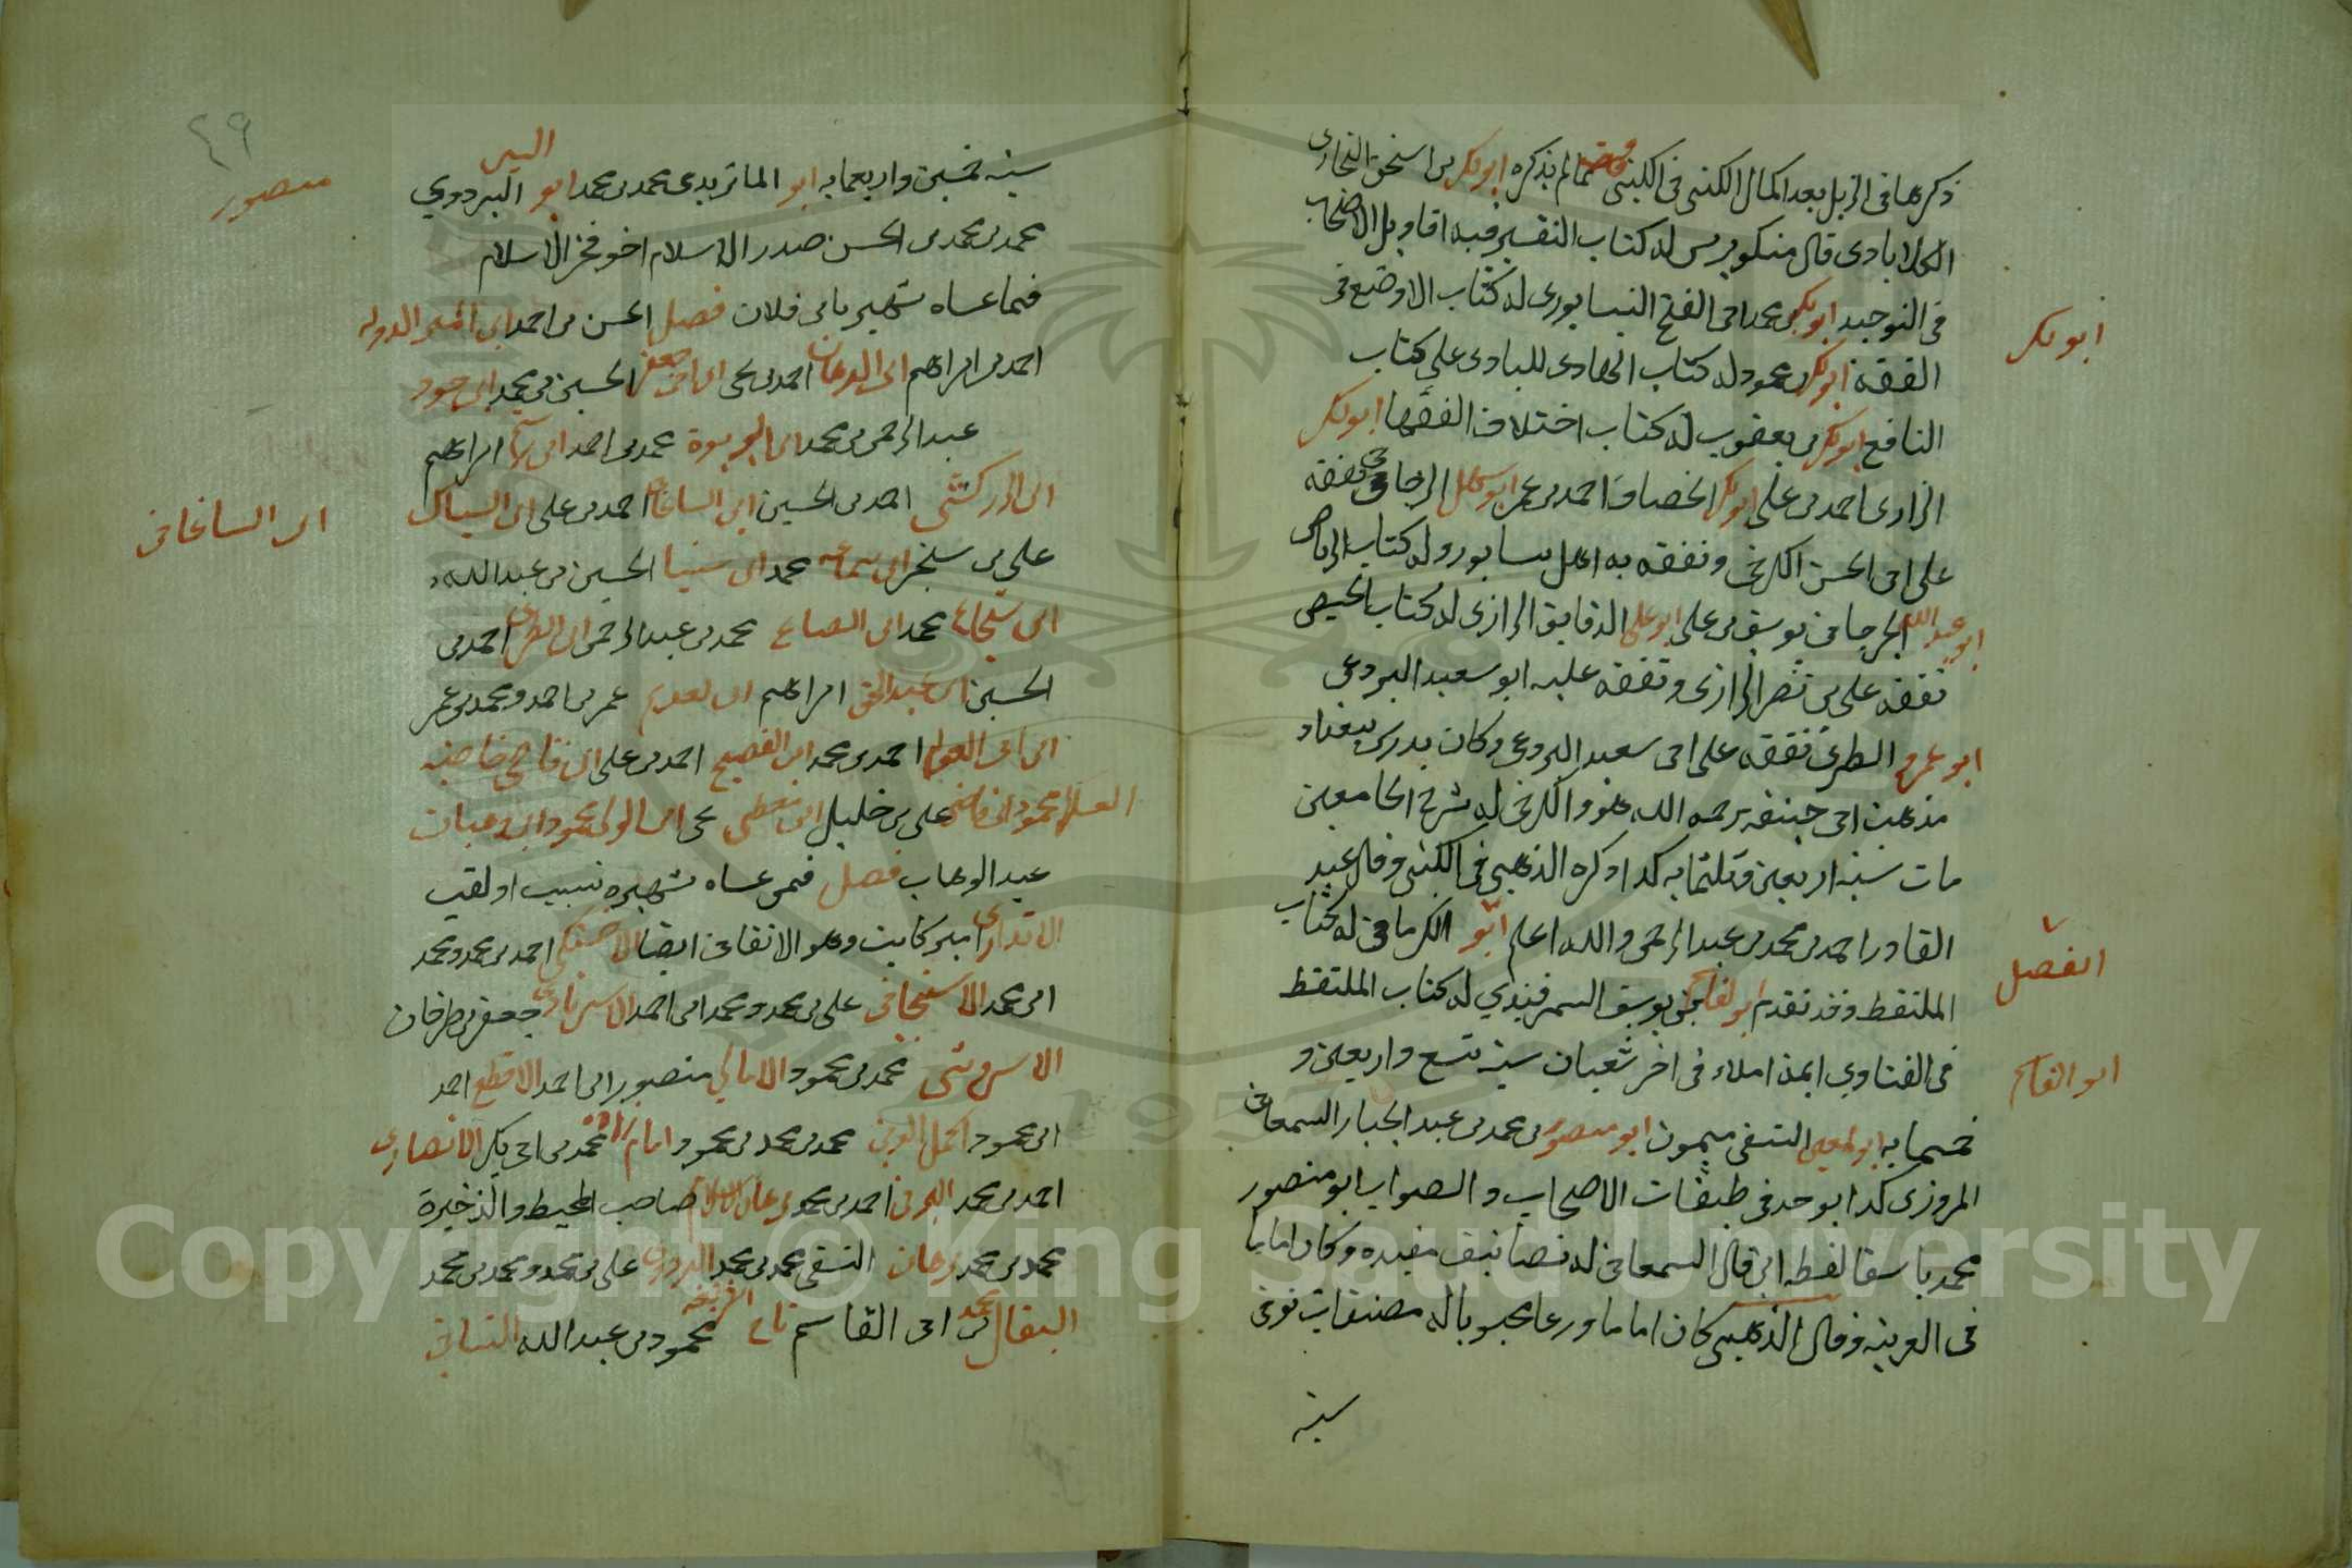 ذكرها فى الزيل بعد اكمال الكنى فى الكنى مما لم يذكره ابو بكر بن اسحق البخارى
الكلابادى قال منكوبرس له كتاب التفسير فيه اقاويل الاصحاب
فى التوحيد ابو بكر محمد بن ابى الفتح النيسابورى له كتاب الاوضح فى
الفقه ابو بكر بن محمود له كتاب الهادى للبادى على كتاب
النافع ابو بكر بن يعقوب له كتاب اختلاف الفقها ابو بكر
الرازى احمد بن على ابو بكر الخصاف احمد بن عمر ابو سهل الزجاجى تفقه
على ابى الحسن الكرخى وتفقه به اهل نيسابور وله كتاب الرياض
ابو عبد الله الجرجانى يوسف بن على ابو على الدقايق الرازى له كتاب الحيض
تفقه على بن نصر الرازى وتفقه عليه ابو سعيد البردعى
ابو عمرو الطبرى تفقه على ابى سعيد البردعى وكان يدرس ببغداد
مذهب ابى حنيفه رحمه الله هو والكرخى له شرح الجامعين
مات سنه اربعين وثلثمايه كذا ذكره الذهبى فى الكنى وقال عبد
القادر احمد بن محمد بن عبد الرحمن والله اعلم ابو الكرمانى له كتاب
الملتقط وقد تقدم ابو القاسم بن يوسف السمرقندي له كتاب الملتقط
فى الفتاوي اتمه املاء فى اخر شعبان سنه تسع واربعين و
خمسمايه ابو المعين النسفى ميمون ابو منصور بن محمد بن عبد الجبار السمعانى
المروزى كذا بو حد فى طبقات الاصحاب والصواب ابو منصور
محمد باسقا لفظه ابن قال السمعانى له تصانيف مفيده وكان اماما
فى العربيه وقال الذهبى كان اماما ورعا محبوبا له مصنفات توفى
سنه
ابو بكر
الفضل
ابو القاسم
٤٩
سنه خمسين واربعمايه ابو الماتريدى محمد بن محمد ابو اليسر البزدوي
محمد بن محمد بن الحسن صدر الاسلام اخو فخر الاسلام
فيما عساه شهير بابن فلان فصل الحسن بن احمد ابن امين الدوله
احمد بن ابراهيم ابن البرهان احمد بن على ابن ابى جعفر الحسين بن محمد ابن خسرو
عبد الرحمن بن محمد ابن الربوة محمد بن احمد ابراهيم
ابن الزركشى احمد بن الحسين ابن الساعاتى احمد بن على ابن السباك
على بن سنجر ابن سماعه محمد ابن سينا الحسين بن عبد الله
ابن شجاع محمد ابن الصايغ محمد بن عبد الرحمن احمد بن
الحسين ابن عبد الحق ابراهيم ابن العديم عمر بن احمد ومحمد بن عمر
ابن ابى العوام احمد بن محمد ابن الفصيح احمد بن على ابن قاضى
محمود ابن قاضى على بن خليل ابن معطى يحى ابن الولى محمود ابن وهبان
عبد الوهاب فصل فيمن عساه شهيره بنسب او لقب
امير كاتب وهو الاتقانى ايضا الاخسيكى احمد بن محمد ومحمد
ابن محمد الاسبيجابى على بن محمد ومحمد ابن احمد جعفر بن طرخان
الاسروشنى محمد بن محمود الامالي منصور ابن احمد الاقطع احمد
ابن محمود اكمل الدين محمد بن محمد بن محمود امام زاده محمد بن ابى بكر الانصارى
احمد بن محمد احمد بن محمود برهان الاسلام صاحب المحيط والذخيرة
محمد بن محمد برهان النسفى محمد بن محمد البزدوى على بن محمد ومحمد بن محمد
البقال محمد بن ابى القاسم تاج الشريعه محمود بن عبد الله
منصور
ابن الساعاتى
Copyright © King Saud University
1957